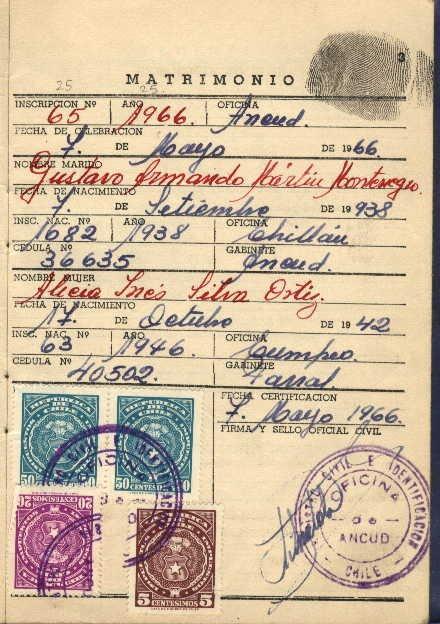 3
25 25
MATRIMONIO
INSCRIPCION Nº AÑO OFICINA
65 1966. Ancud.
FECHA DE CELEBRACION
7. DE Mayo DE 1966.
NOMBRE MARIDO
Gustavo Armando Mártin Montenegro.
FECHA DE NACIMIENTO
7 DE Setiembre DE 19938
INSC. NAC. Nº AÑO OFICINA
1682 1938 Chillán
CEDULA Nº GABINETE
36635 Ancud.
NOMBRE MUJER
Alicia Inés Silva Ortiz.
FECHA DE NACIMIENTO
17. DE Octubre DE 1942
INSC. NAC. Nº AÑO OFICINA
63 1946. Cumpeo.
CEDULA Nº GABINETE
40502. Parral
FECHA CERTIFICACION
7. Mayo 1966.
FIRMA Y SELLO OFICIAL CIVIL
REPUBLICA DE CHILE
50 CENTESIMOS
REPUBLICA DE CHILE
50 CENTESIMOS 50
CIVIL E IDENTIFICACION
OFICINA
20 CENTESIMOS 20
5 CENTESIMOS 5
CIVIL E IDENTIFICACION
OFICINA
DE
ANCUD
CHILE